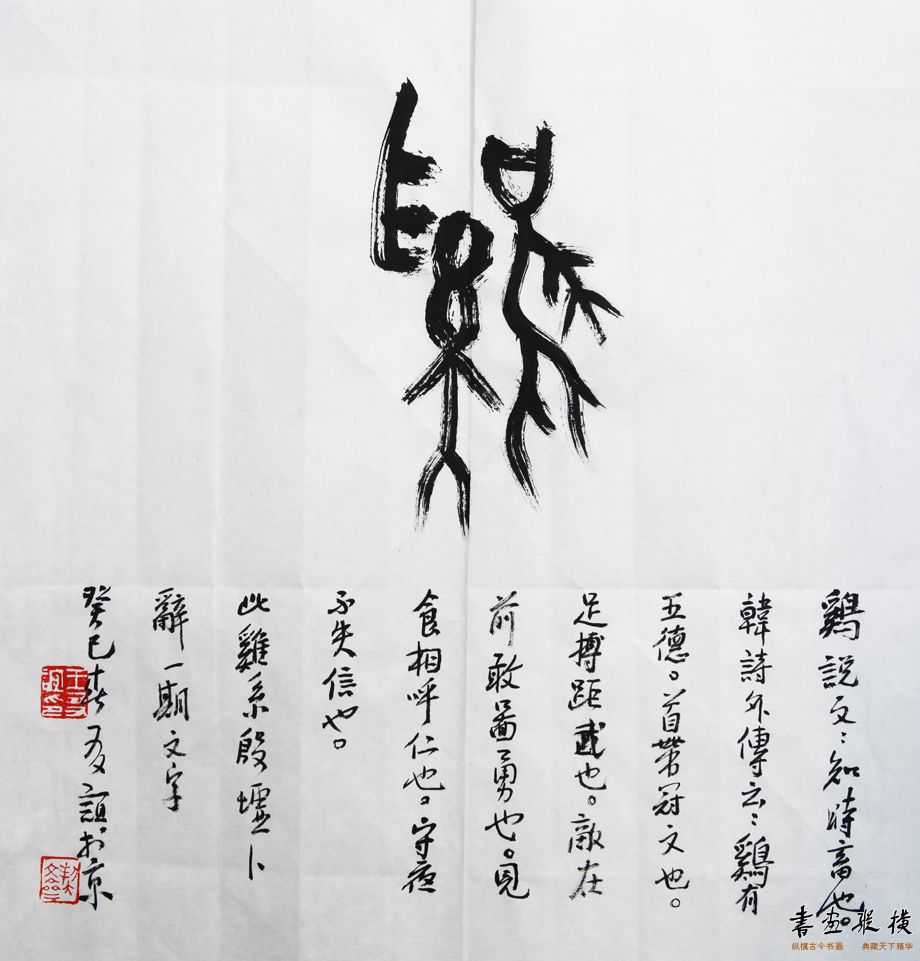 鷄
鷄說文：知時畜也。
韓詩外傳云：鷄有
五德。首帶冠文也。
足搏距武也。敵在
前敢啚勇也。見
食相呼仁也。守夜
不失信也。
此雞系殷墟卜
辭一期文字
癸巳春友誼於京
書画縱橫
纵横古今书画 典藏天下精华